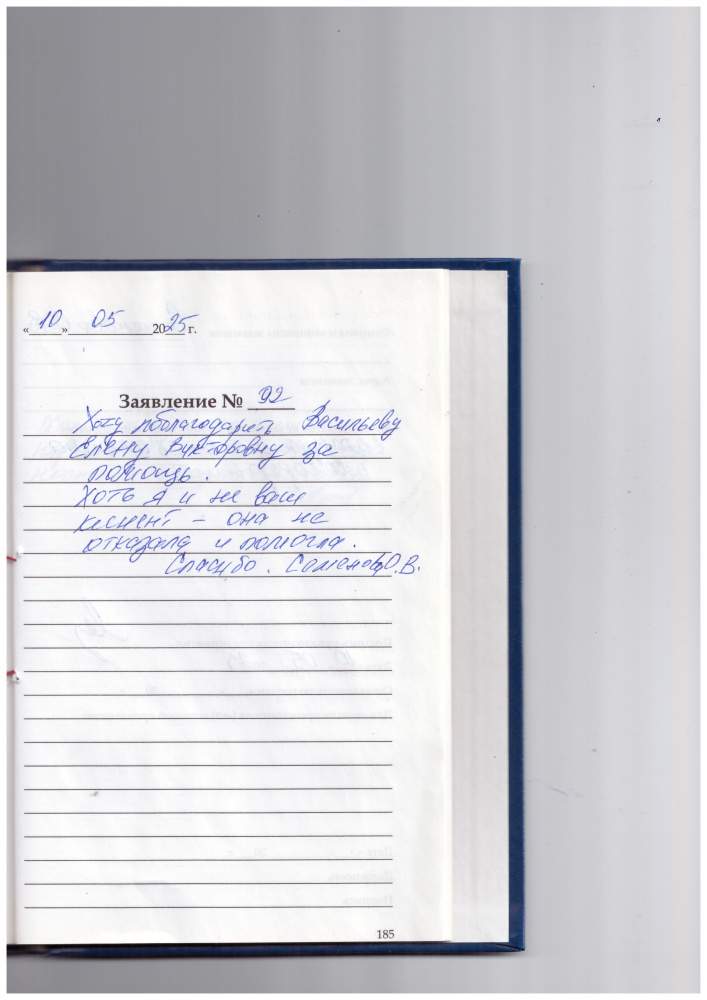 «10» 05 2025 г.
Заявление № 92
Хочу поблагодарить Васильеву
Елену Викторовну за
помощь.
Хоть я и не ваш
клиент – она не
отказала и помогла.
Спасибо. Семенова О.В.
185